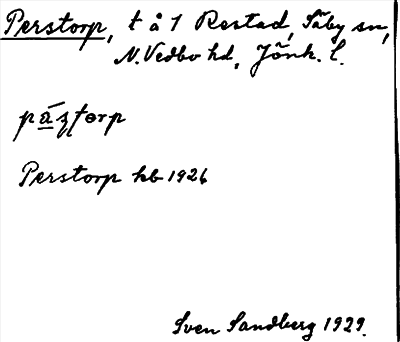 Perstorp, t å 1 Restad, Säby sn,
N. Vedbo hd, Jönk. l.
Perstorp kb 1926
Sven Sandberg 1929.